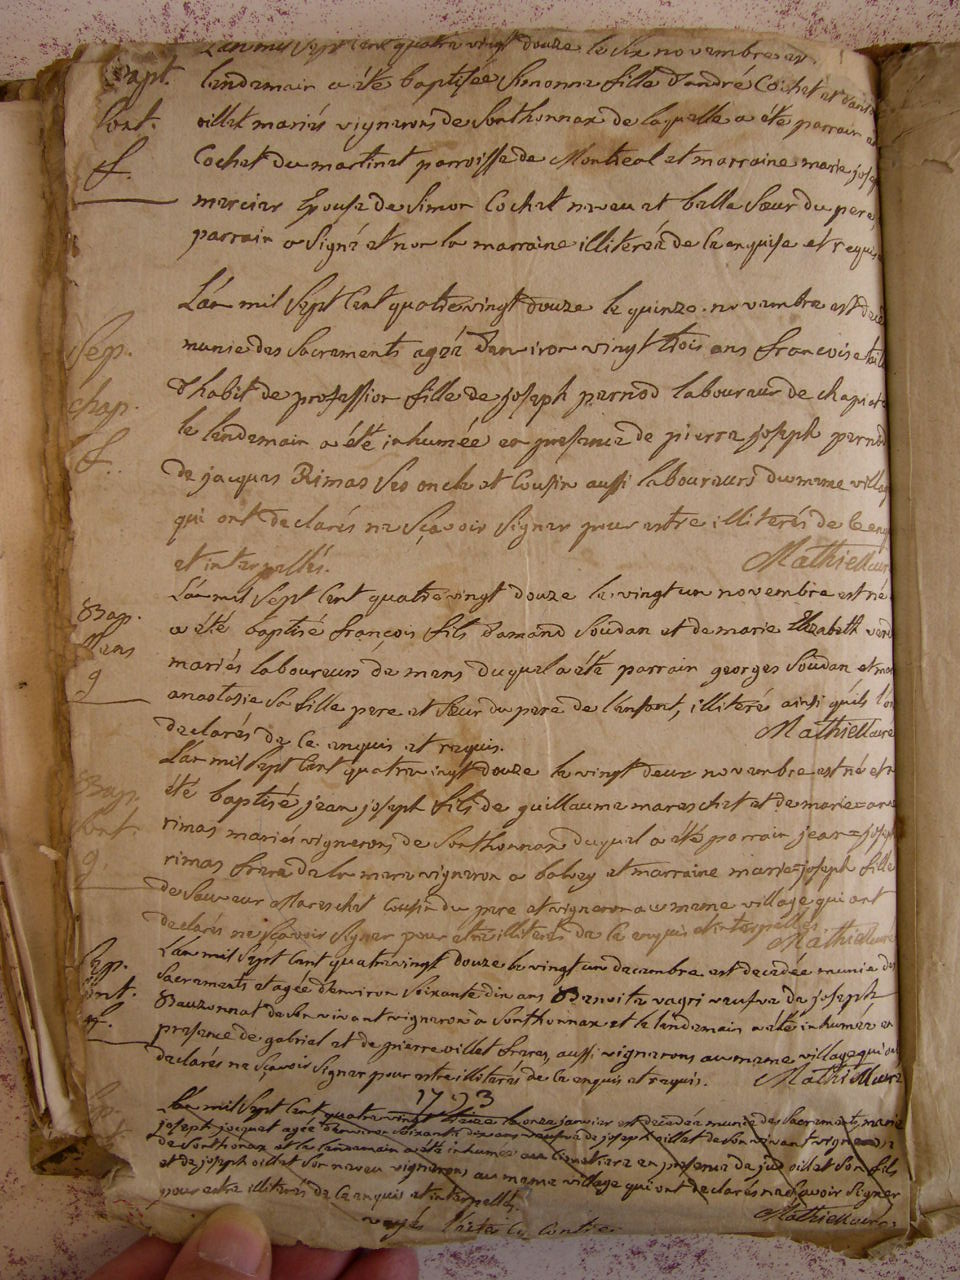 L'an mil Sept Cent quatre vingt douze le Six novembre
Bapt. lendemain a été baptisée Simonne fille d'andré Cochet et
Sont. oillet mariés vignerons de Sonthonnax de laquelle a été parrain
f. Cochet du martinet parroisse de Montreal et marraine marie josep
mercier Epouse de Simon Cochet neveu et belle Sœur du pere,
parrain a Signé et non la marraine illiterée de ce enquise et requise
L'an mil Sept Cent quatre vingt douze le quinze novembre est
Sep. munie des Sacrements agée d'environ vingt trois ans francoise
chap. d'habit de profession fille de joseph pernod laboureur de
f. le lendemain a été inhumée en presence de pierre joseph pernod
de jacques Rimas Ses oncle et Cousin aussi laboureurs du meme village
qui ont declarés ne Sçavoir Signer pour estre illiterés de ce enquis
et interpellés. Mathieu
L'an mil Sept Cent quatre vingt douze le vingt un novembre est né
Bap. a été baptisé françois fils d'amand Soudan et de marie Elizabeth
Mens mariés laboureurs de mens duquel a été parrain georges Soudan et
g anastasie Sa fille pere et Sœur du pere de l'enfant, illiteré ainsi qu'ils l'ont
declarés de Ce enquis et requis. Mathieu
L'an mil Sept Cent quatre vingt douze le vingt deux novembre est né et
Bap. été baptisé jean joseph fils de guillaume mareschet et de marie=
Sont. rimas mariés vignerons de Sonthonnax duquel a été parrain jean=joseph
g. rimas frere de la mere vigneron a bolozy et marraine marie=joseph fille
de Sauveur Mareschet Cousin du pere et vigneron au meme village qui ont
declarés ne Sçavoir Signer pour etre illiterés de Ce enquis et interpellés. Mathieu
L'an mil Sept Cent quatre vingt douze le vingt un decembre est decedée munie des
Sep. Sacrements et agée d'environ Soixante dix ans Benoite vagri veufve de joseph
Sont. Bauzonnet de Son vivant vigneron a Sonthonnax et le lendemain a été inhumée en
f. presence de gabriel et de pierre oillet freres, aussi vignerons au meme village qui ont
declarés ne Sçavoir Signer pour estre illiterés de Ce enquis et requis. Mathieu
1793
L'an mil Sept Cent quatre vingt treize le onze janvier est decedée munie des Sacrements marie
joseph jacquet agée d'environ Soixante dix ans veufve de joseph oillet de Son vivant vigneron
de Sonthonax et le lendemain a été inhumée au Cimetiere en presence de oillet Son fils
et de joseph oillet Son neveu vignerons au meme village qui ont declarés ne Sçavoir Signer
pour estre illiterés de Ce enquis et interpellés. Mathieu
voyés l'acte Cy Contre